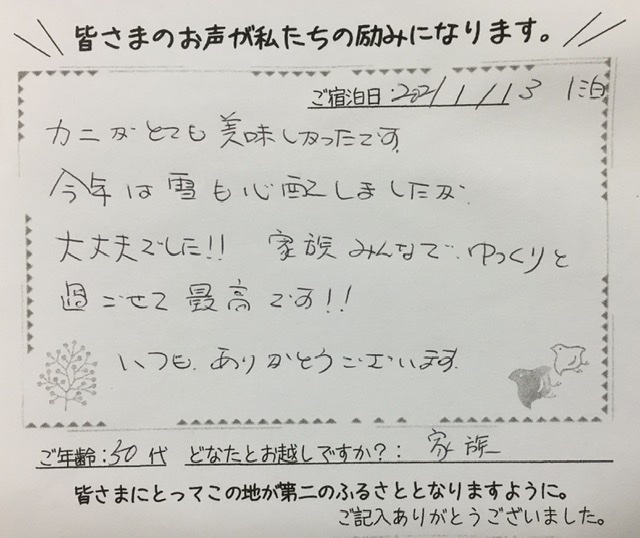 皆さまのお声が私たちの励みになります。
ご宿泊日:2021/1/13 1泊
カニがとても美味しかったです。
今年は雪も心配しましたが、
大丈夫でした!! 家族みんなで、ゆっくりと
過ごせて最高です!!
いつも、ありがとうございます。
ご年齢:30代 どなたとお越しですか?: 家族
皆さまにとってこの地が第二のふるさととなりますように。
ご記入ありがとうございました。